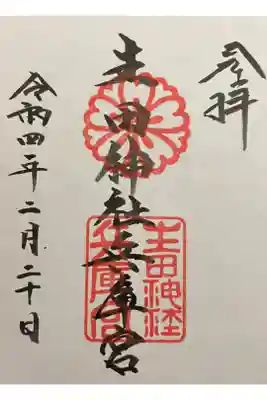 参拝
生田神社兵庫宮
令和四年二月二十日
生田神社
兵庫宮